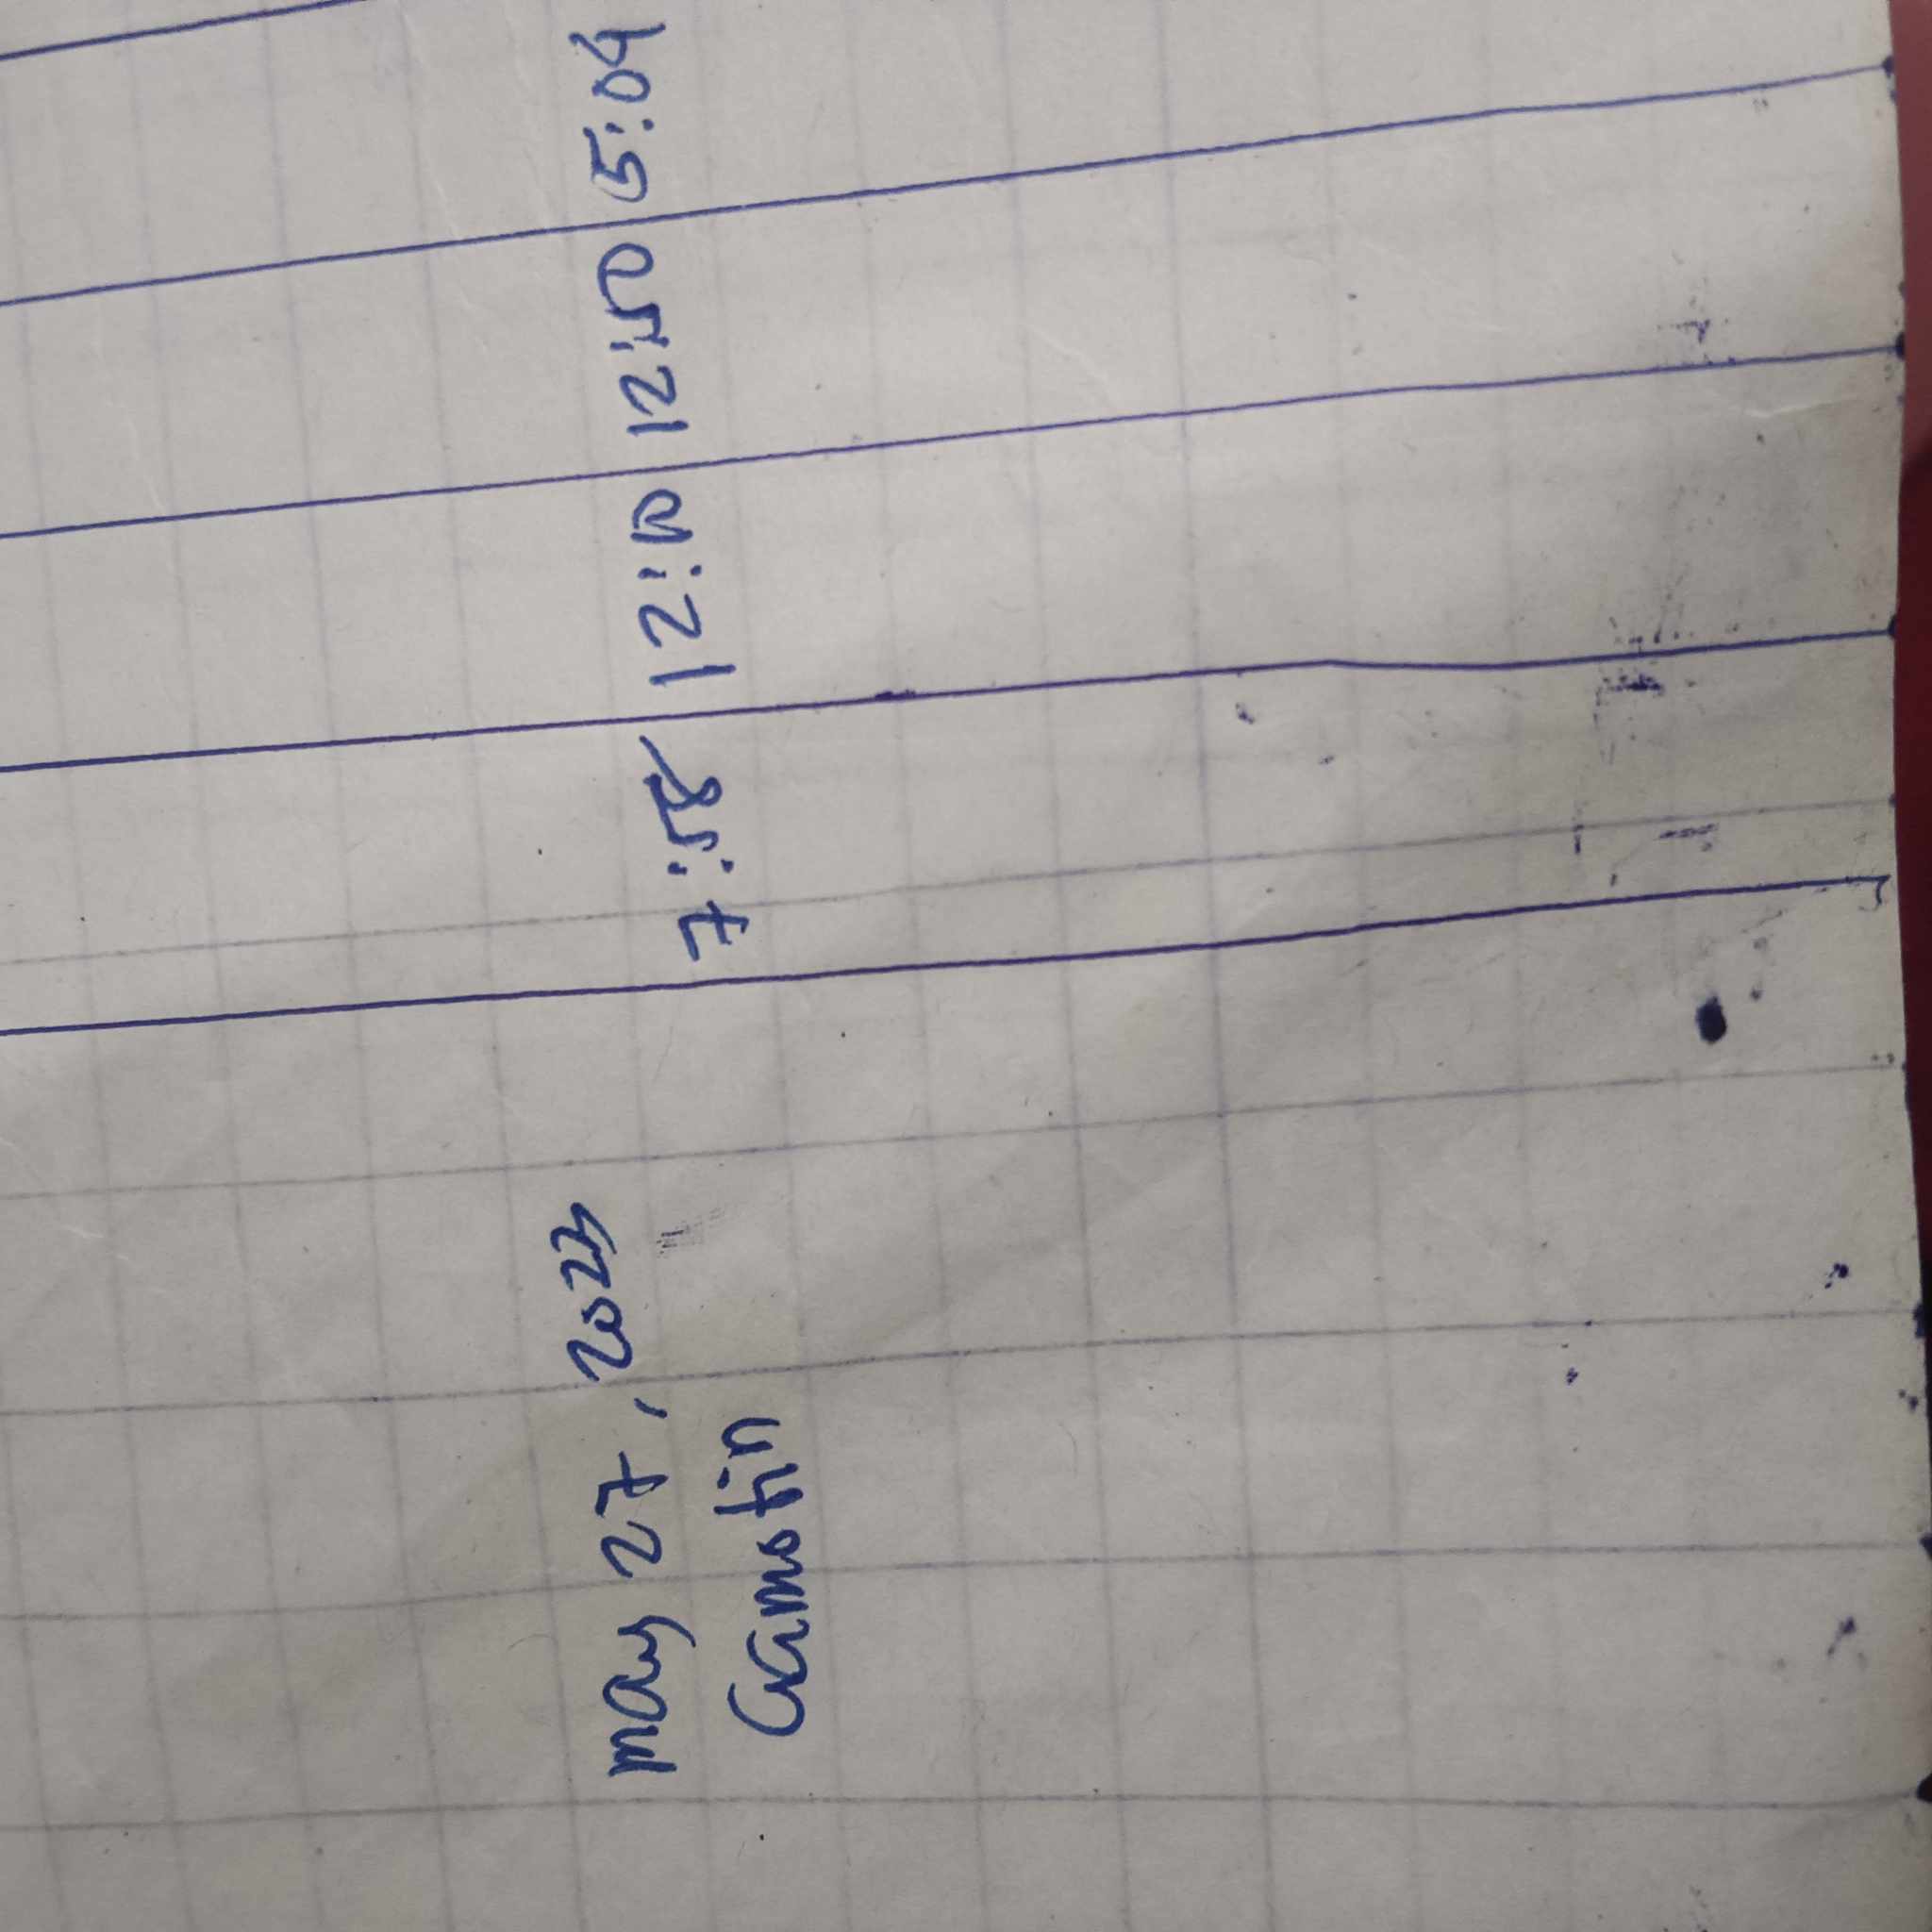 may 27, 2023 7:58 12:10 12:50 5:04
Camotin